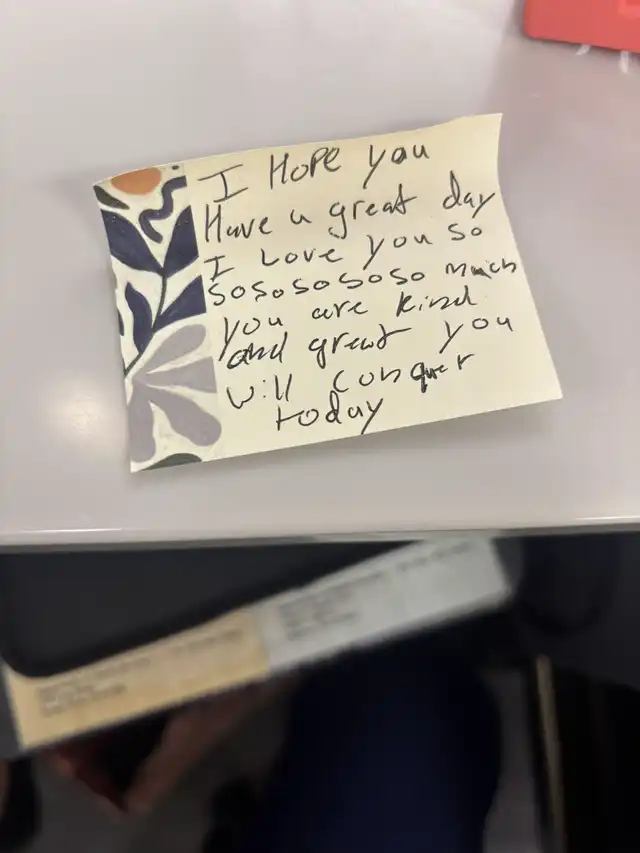 I Hope you
Have a great day
I Love you so
sosososososo much
you are kind
and great you
will conquer
today